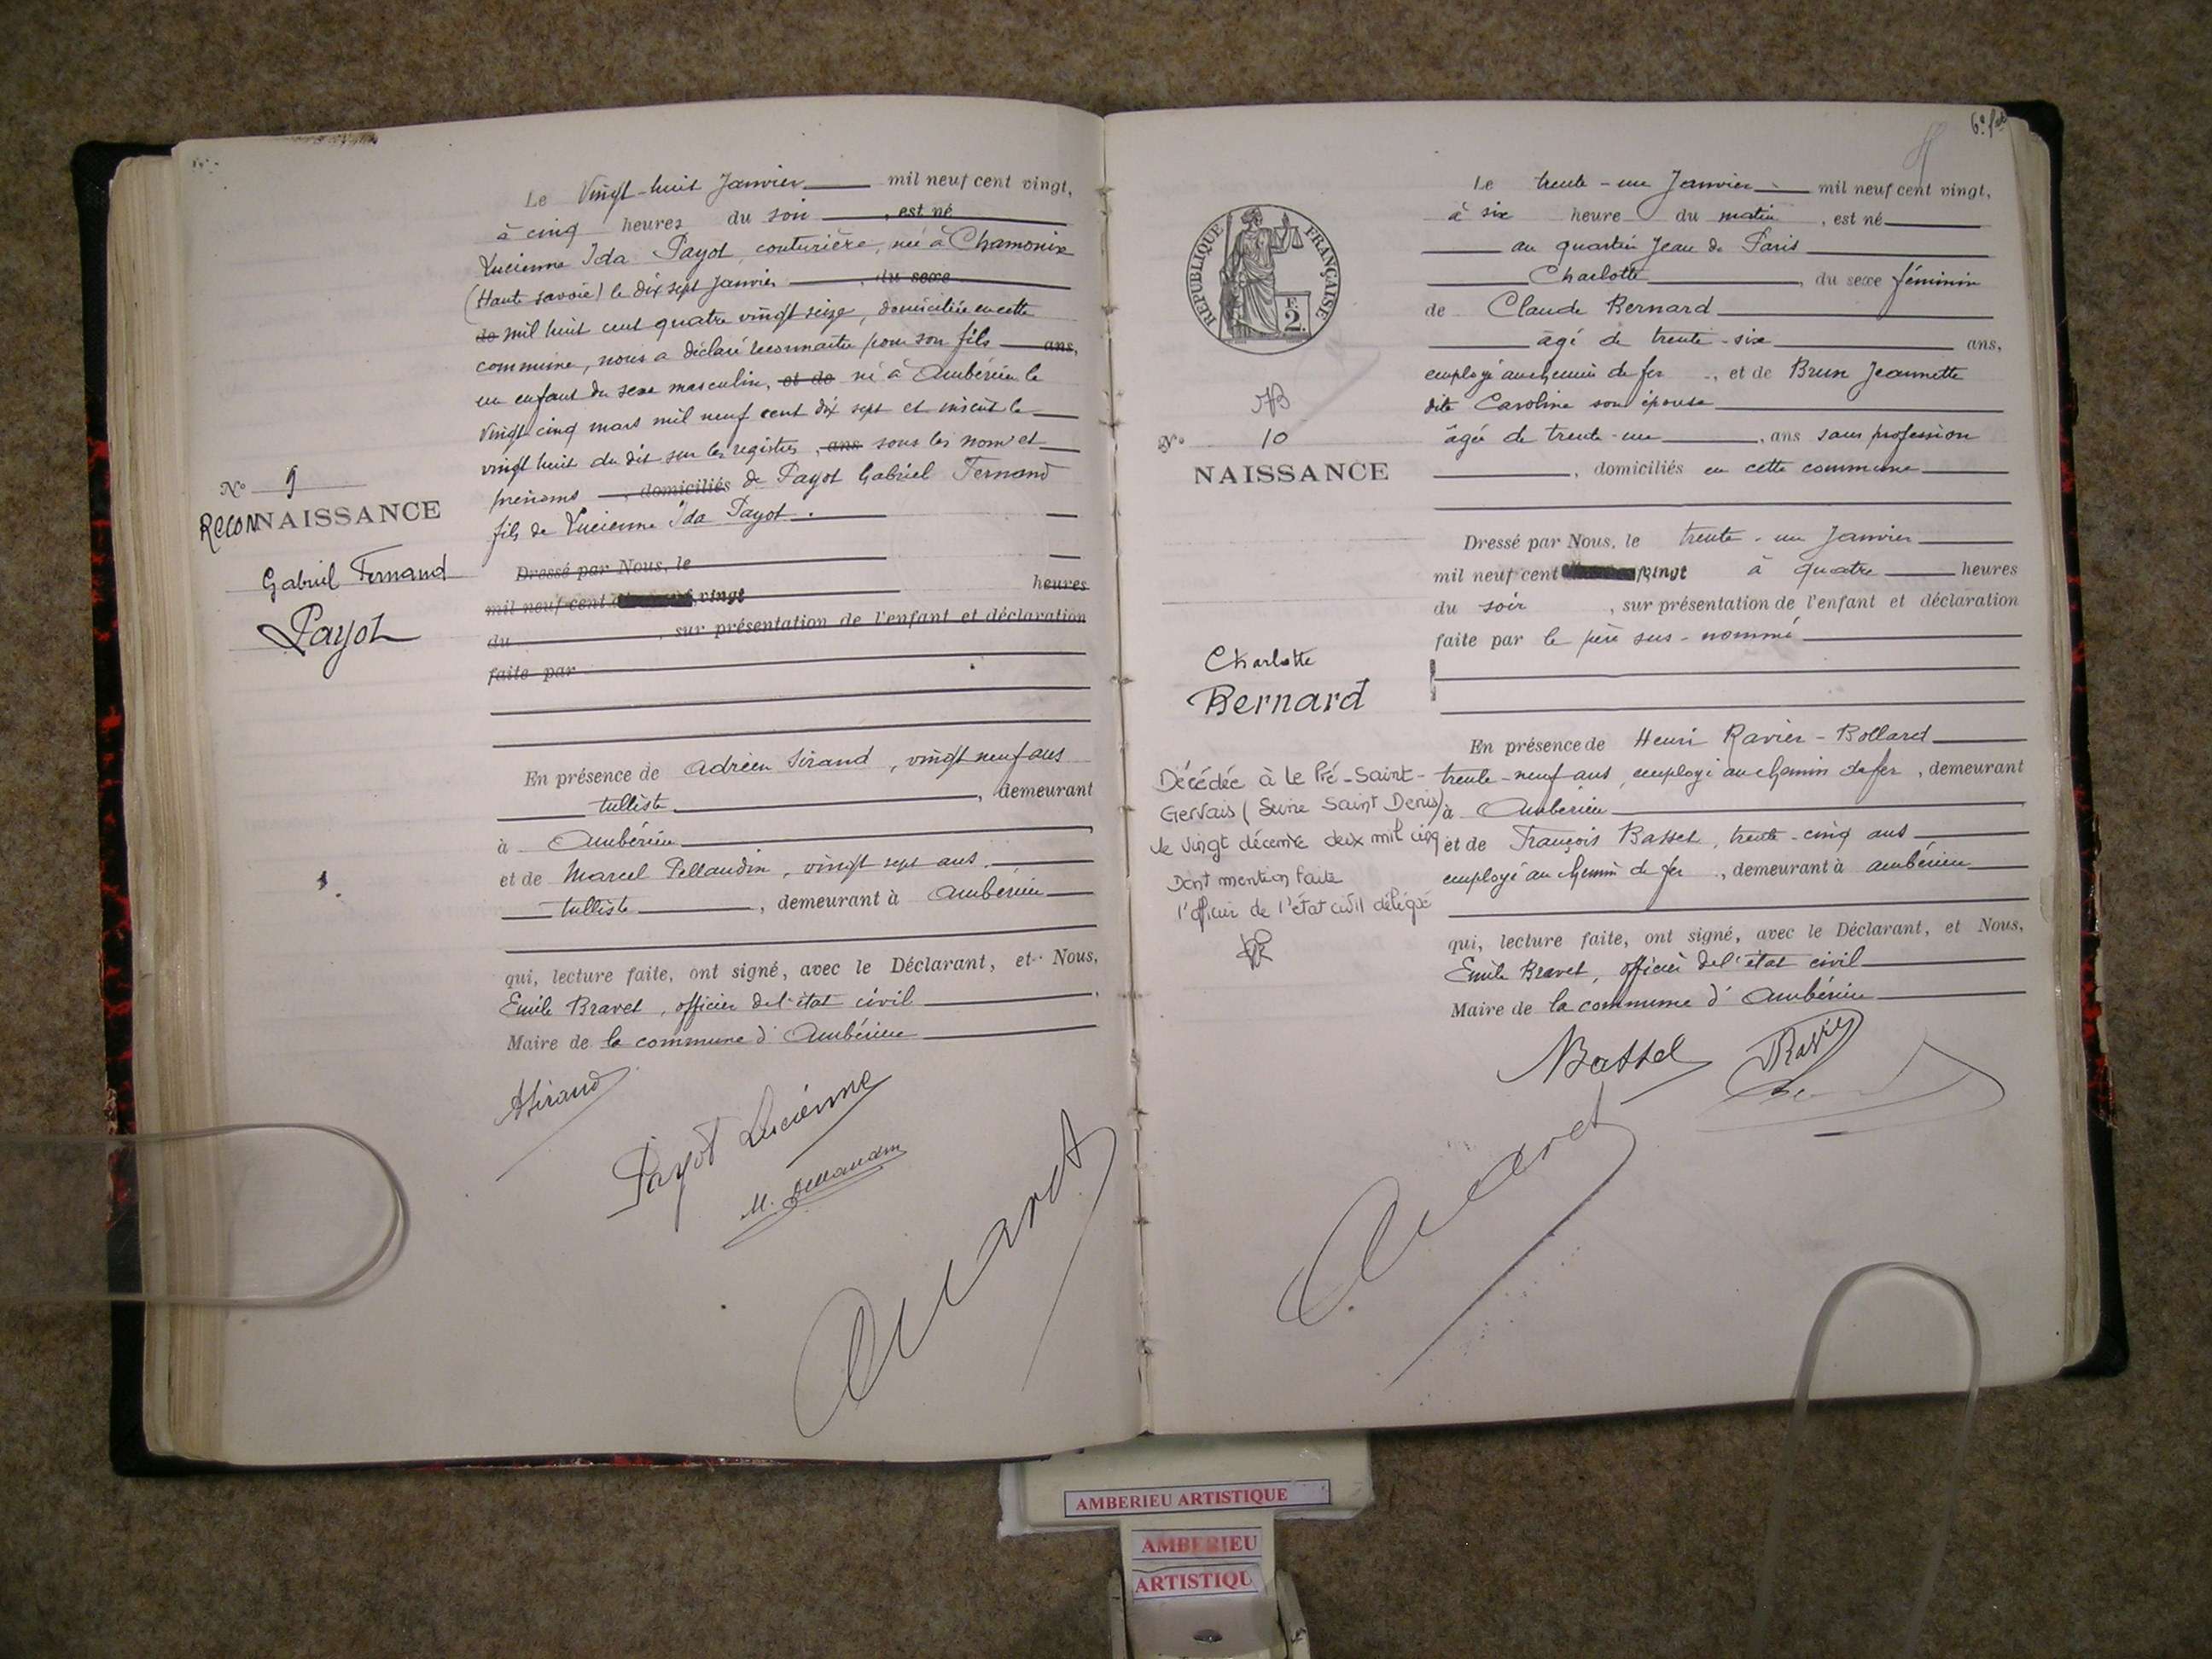 Le Vingt-huit Janvier mil neuf cent vingt,
à cinq heures du soir, est né
Lucienne Ida Payot, couturière, née à Chamonix
(Haute savoie) le dix sept Janvier, du sexe
de mil huit cent quatre vingt seize, domiciliée en cette
commune, nous a déclaré reconnaître pour son fils ans,
un enfant du sexe masculin, et de né à Ambérieu le
vingt cinq mars mil neuf cent dix sept et inscrit le
vingt huit du dit sur les registres, ans sous les nom et
prénoms, domiciliés de Payot Gabriel Fernand
fils de Lucienne Ida Payot.
N° 9
RECONNAISSANCE
Gabriel Fernand
Payot
Dressé par Nous, le
mil neuf cent vingt heures
du, sur présentation de l'enfant et déclaration
faite par
En présence de Adrien Sirand, vingt neuf ans
tulliste, demeurant
à Ambérieu
et de Marcel Pellaudin, vingt sept ans
tulliste, demeurant à Ambérieu
qui, lecture faite, ont signé, avec le Déclarant, et Nous,
Emile Bravet, officier de l'état civil
Maire de la commune d'Ambérieu
ASirand
Payot Lucienne
M. Pellaudin
6e f.et
Le trente-un Janvier mil neuf cent vingt,
à six heure du matin, est né
au quartier Jean de Paris
Charlotte, du sexe féminin
de Claude Bernard
âgé de trente-six ans,
employé au chemin de fer, et de Brun Jeannette
dite Caroline son épouse
âgée de trente-un, ans sans profession
, domiciliés en cette commune
REPUBLIQUE FRANÇAISE
F.
2.
N° 10
NAISSANCE
Charlotte
Bernard
Dressé par Nous, le trente-un Janvier
mil neuf cent vingt à quatre heures
du soir, sur présentation de l'enfant et déclaration
faite par le père sus-nommé
En présence de Henri Ravier-Bollard
trente-neuf ans, employé au chemin de fer, demeurant
à Ambérieu
et de François Bassel, trente-cinq ans
employé au chemin de fer, demeurant à Ambérieu
qui, lecture faite, ont signé, avec le Déclarant, et Nous,
Emile Bravet, officier de l'état civil
Maire de la commune d'Ambérieu
Décédée à Le Pré-Saint-
Gervais (Seine Saint Denis)
le vingt décembre deux mil cinq
Dont mention faite
l'officier de l'état civil délégué
Bassel
Ravier
AMBERIEU ARTISTIQUE
AMBERIEU
ARTISTIQU